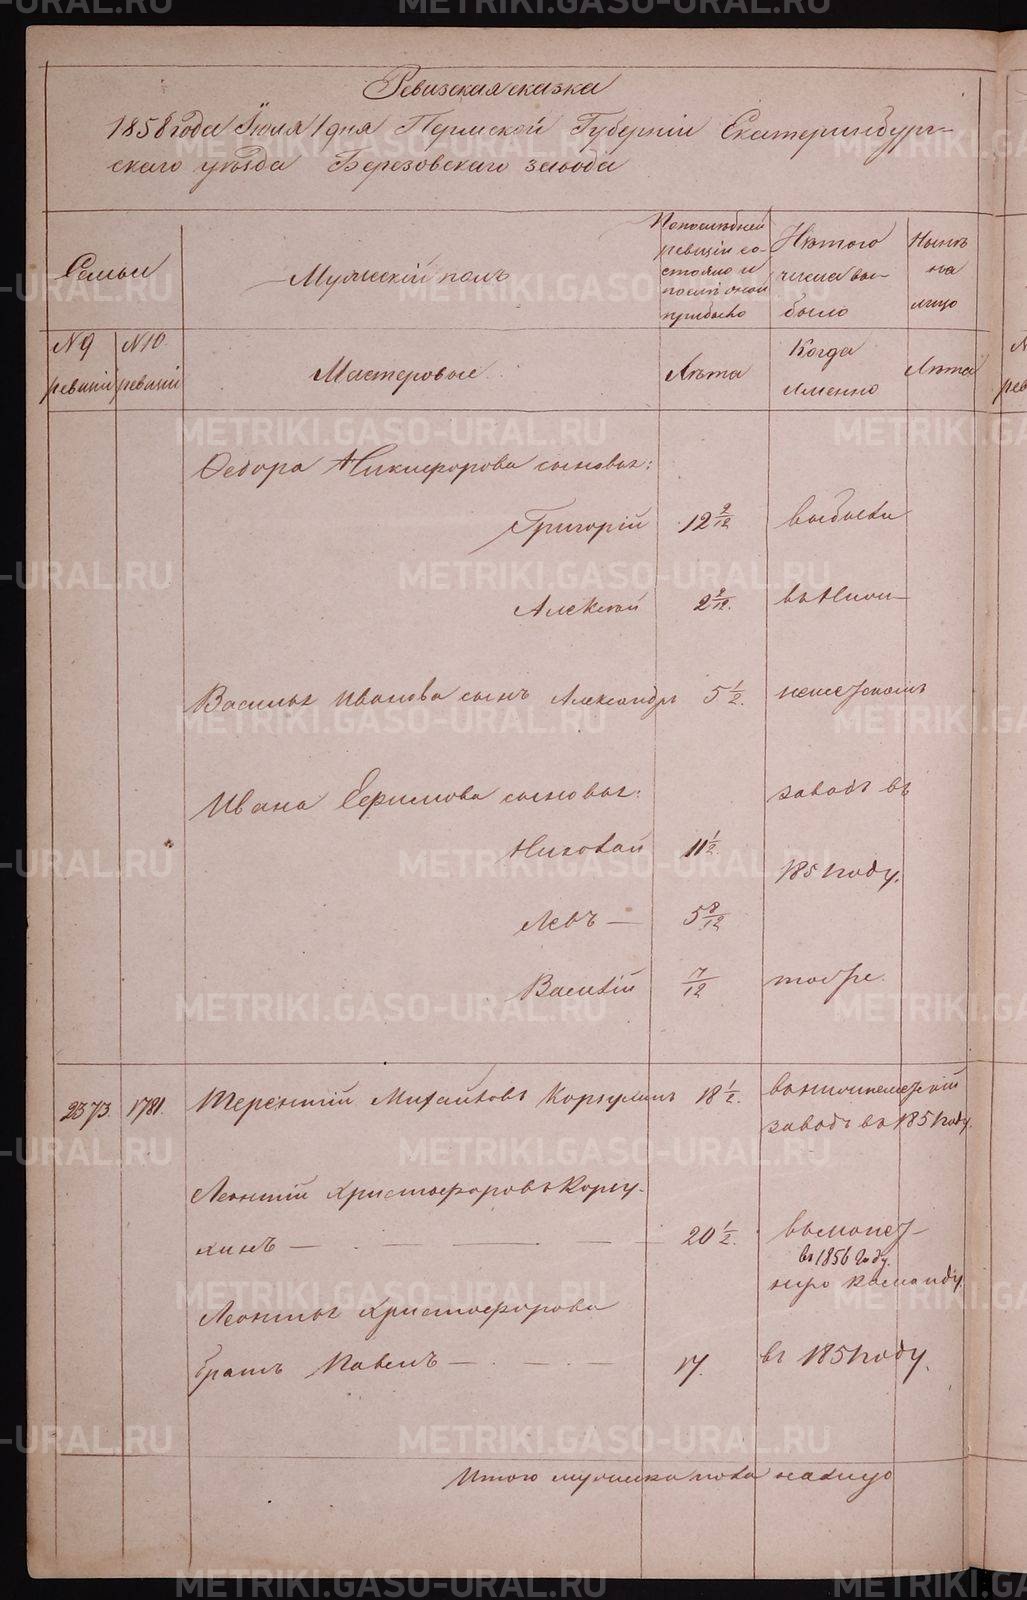 Ревизская сказка
1858 года Июля 1 дня Пермской Губерніи Екатеринбург-
скаго уѣзда Березовскаго завода
Семьи
Мужескій полъ
По послѣдней ревизіи состояло и послѣ оной прибыло
Изъ того числа выбыло
Нынѣ на лицо
№ 9 ревизіи
№ 10 ревизіи
Мастеровые
Лѣта
Когда именно
Лѣта
Федора Никифорова сыновья:
Григорій 12 9/12 выбыли
Алексѣй 2 2/12. въ Нижне-
Василья Иванова сынъ Александръ 5 1/2. исетскомъ
Ивана Ефимова сыновья: заводѣ въ
Николай 11 1/2 1851 году.
Левъ — 5 8/12
Василій 7/12 тоже
2373. 1781. Терентій Михайловъ Коркулинъ 18 1/2. въ Нижнеисетскій
заводъ въ 1851 году.
Леонтій Христофоровъ
— 20 1/2.
въ 1856 году.
команду
Леонтья Христофорова
братъ Павелъ — 17. въ 1851 году.
Итого мужеска пола налицо
METRIKI.GASO-URAL.RU